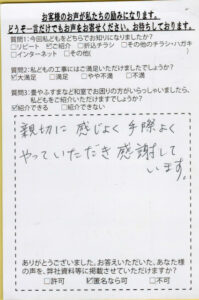 お客様のお声が私たちの励みになります。
どうぞ一言だけでもお声をお寄せください。お待ちしております。
質問1:今回私どもをどちらでお知りになりましたか?
□リピート ☑ご紹介 □折込チラシ □その他のチラシ・ハガキ
□インターネット □その他(
質問2:私どもの工事にはご満足いただけましたでしょうか?
☑大満足 □満足 □やや不満 □不満
質問3:畳やふすまなど和室でお困りの方がいらっしゃいましたら、
私どもをご紹介いただけますでしょうか?
☑紹介できる □紹介できない
親切に感じよく手際よく
やっていただき感謝して
います。
ありがとうございました。お答えいただいた、あなた様
の声を、弊社資料等に掲載させていただけますか?
□許可 ☑匿名なら可 □不可